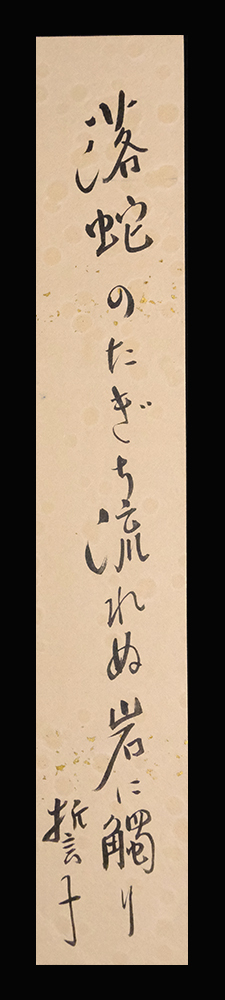 落蛇のたぎち流れぬ岩に觸り
誓子